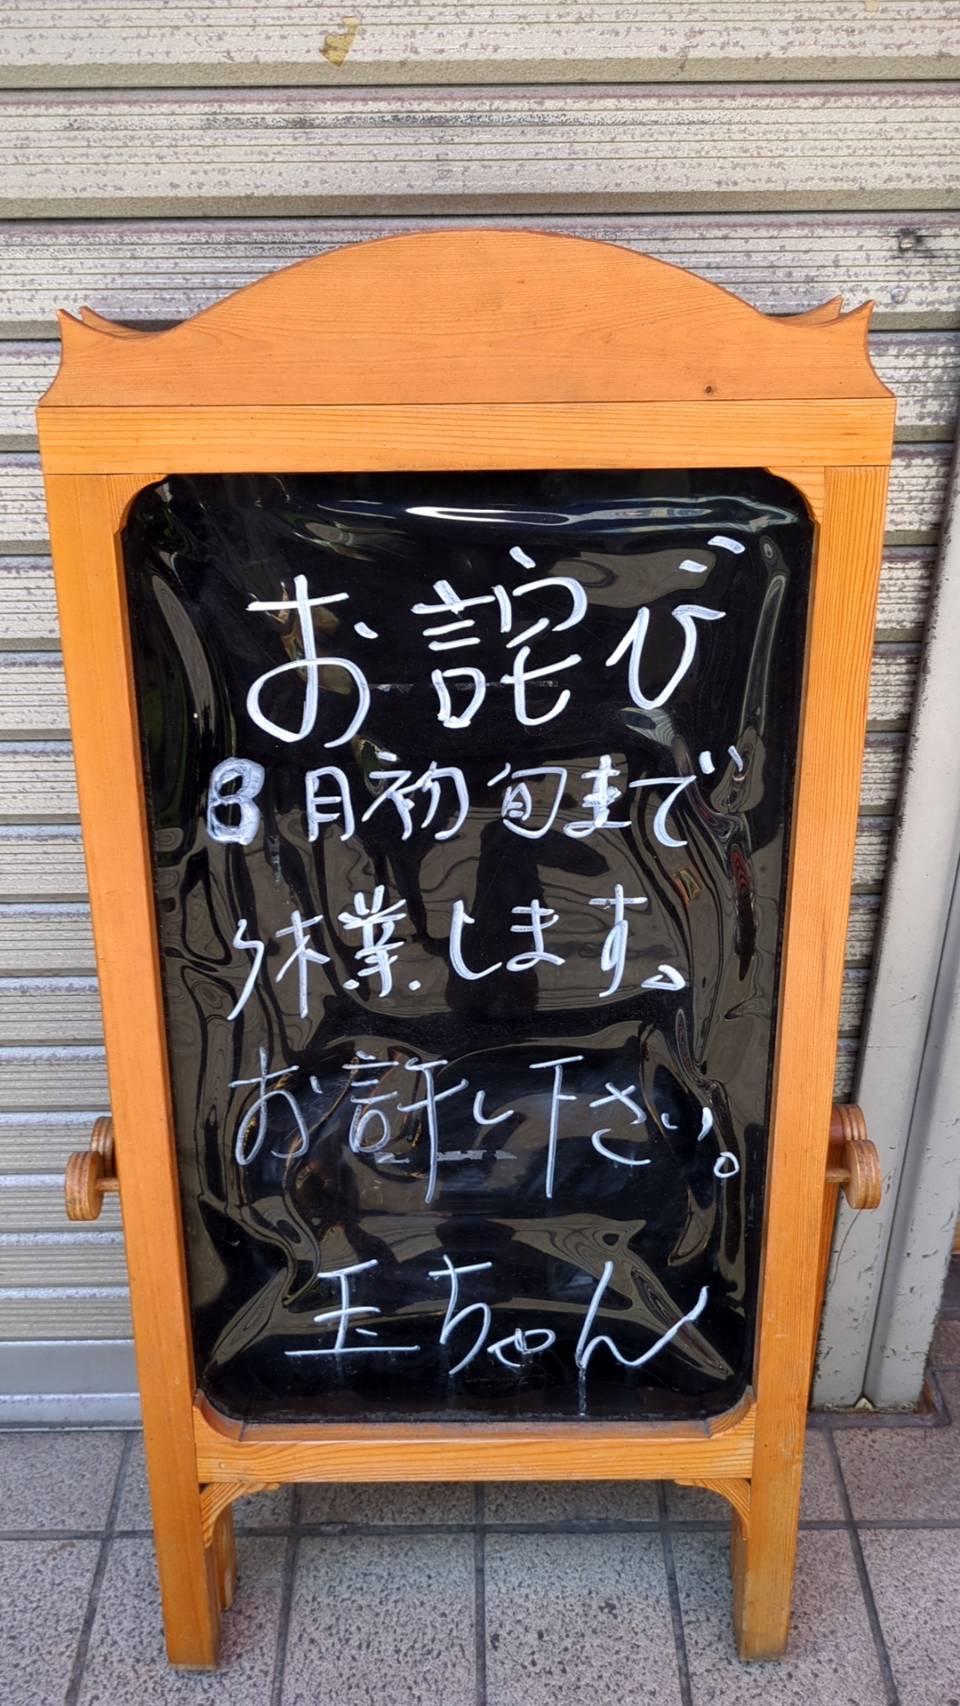 お詫び
8月初旬まで
休業します。
お許し下さい。
玉ちゃん